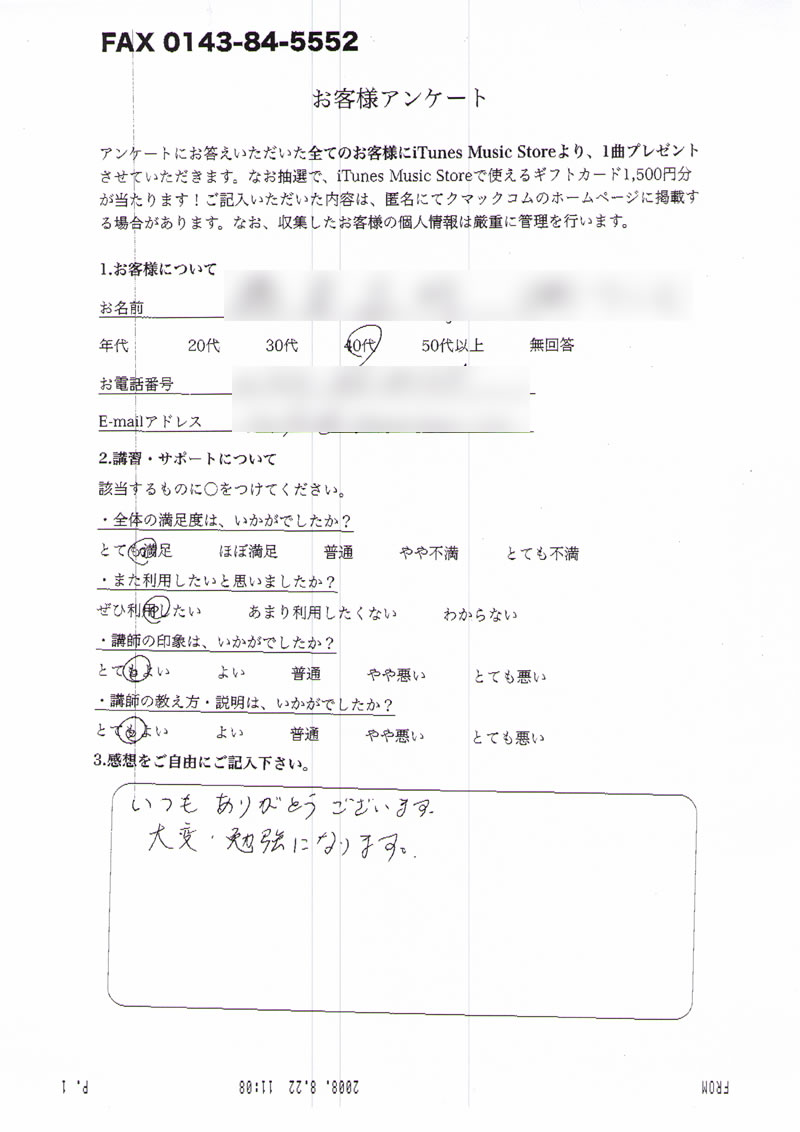 FAX 0143-84-5552
お客様アンケート
アンケートにお答えいただいた全てのお客様にiTunes Music Storeより、1曲プレゼント
させていただきます。なお抽選で、iTunes Music Storeで使えるギフトカード1,500円分
が当たります！ご記入いただいた内容は、匿名にてクマックコムのホームページに掲載す
る場合があります。なお、収集したお客様の個人情報は厳重に管理を行います。
1.お客様について
お名前
年代 20代 30代 40代 50代以上 無回答
お電話番号
E-mailアドレス
2.講習・サポートについて
該当するものに○をつけてください。
・全体の満足度は、いかがでしたか？
とても満足 ほぼ満足 普通 やや不満 とても不満
・また利用したいと思いましたか？
ぜひ利用したい あまり利用したくない わからない
・講師の印象は、いかがでしたか？
とてもよい よい 普通 やや悪い とても悪い
・講師の教え方・説明は、いかがでしたか？
とてもよい よい 普通 やや悪い とても悪い
3.感想をご自由にご記入下さい。
いつもありがとうございます.
大変・勉強になります。
P. 1 2008. 8.22 11:08 FROM